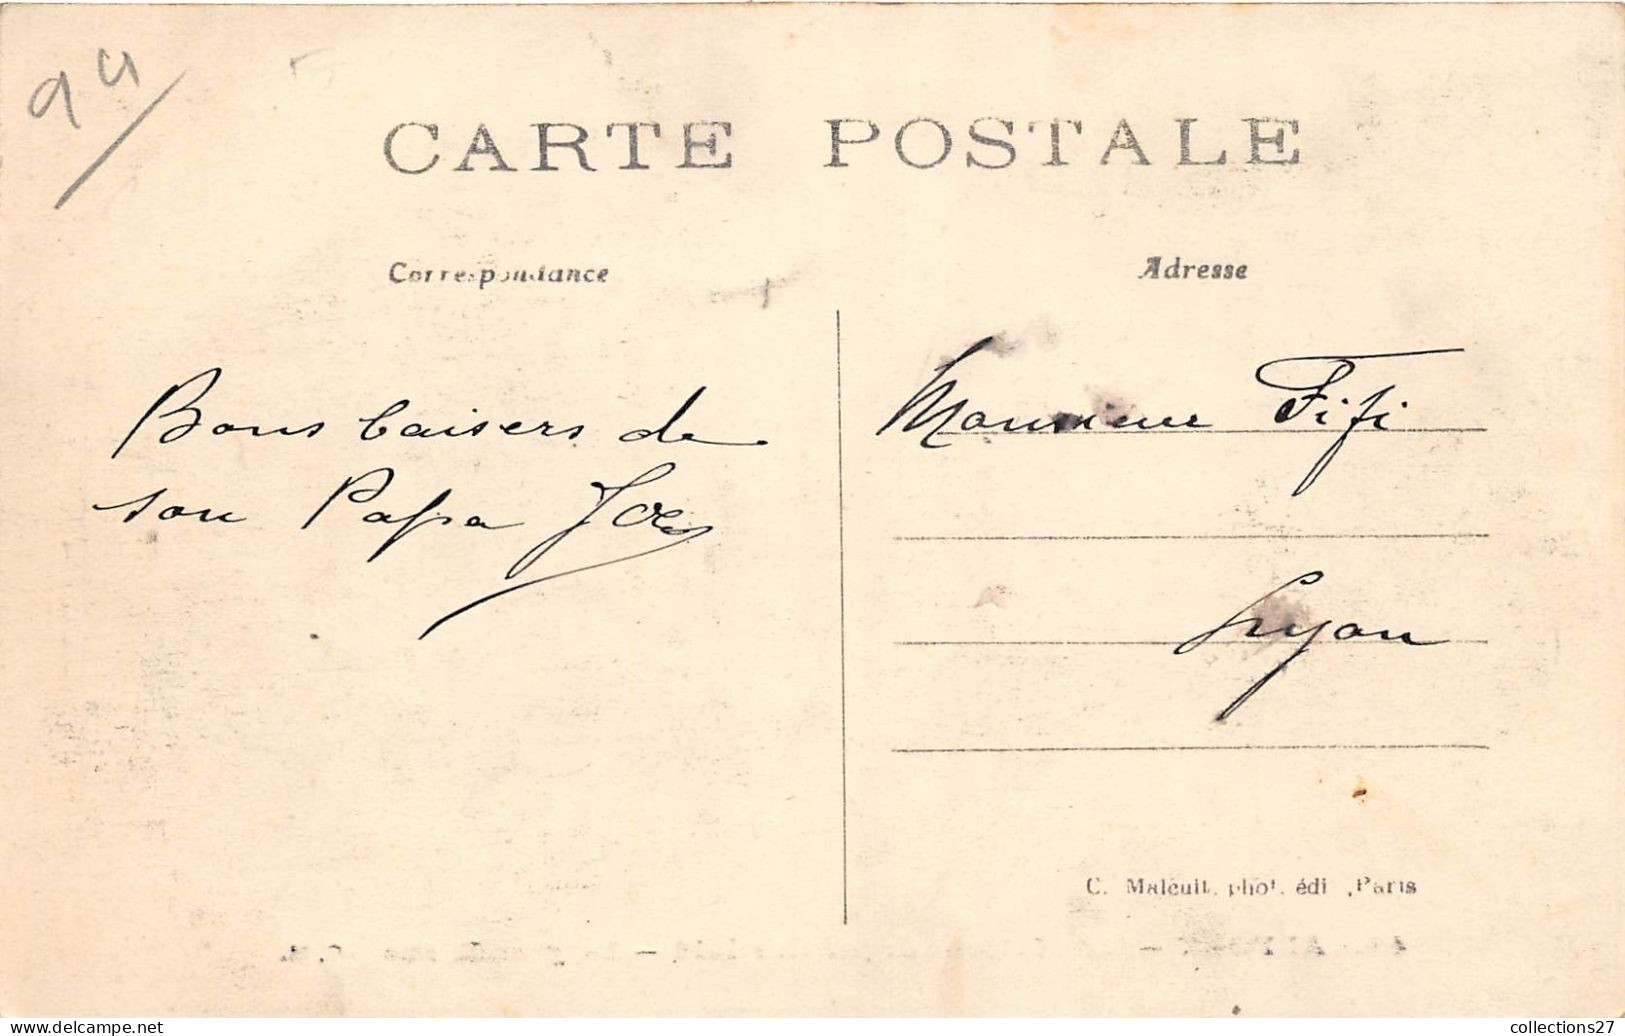 94
CARTE POSTALE
Correspondance
Adresse
Bons baisers de
son Papa
Monsieur Fifi
Lyon
C. Malcuit, phot. édi , Paris
collections27